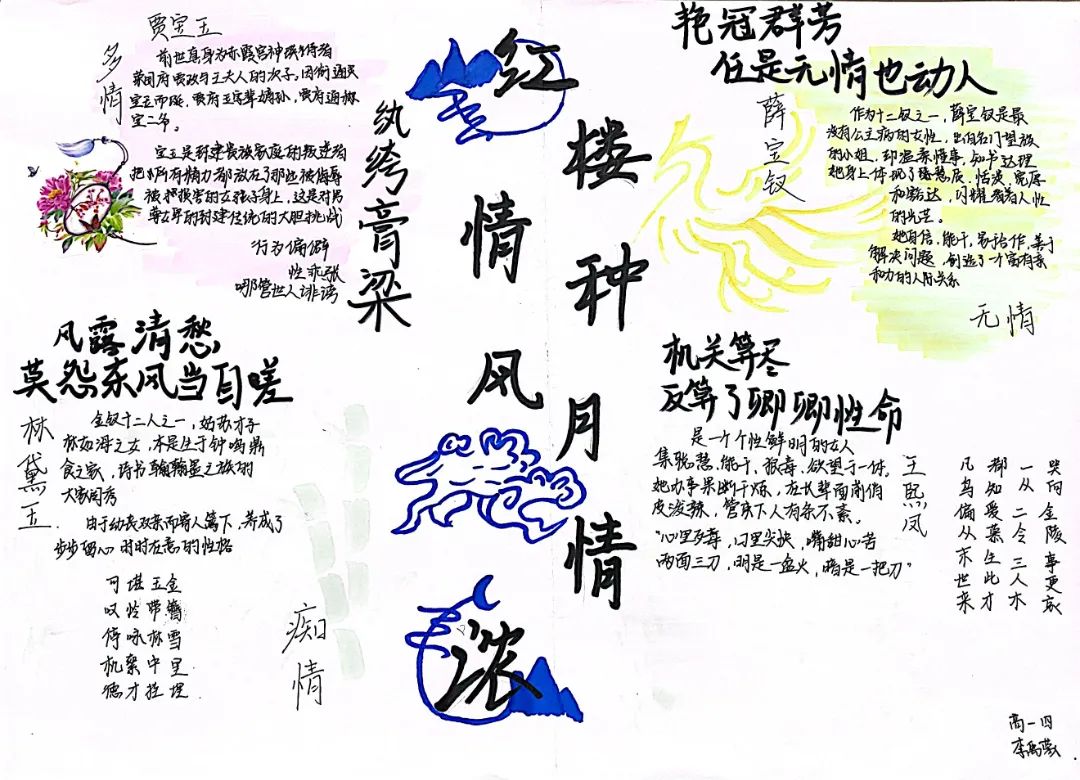 红楼
情种
风月
情浓
贾宝玉
多情
前世真身为赤霞宫神瑛侍者
荣国府贾政与王夫人的次子。因衔通灵
宝玉而诞,贾府玉字辈嫡孙,贾府通称
宝二爷。
宝玉是封建贵族家庭的叛逆者
把所有精力都放在了那些被侮辱
被损害的女孩子身上,这是对男
尊女卑的封建传统的大胆挑战
行为偏僻
性乖张
哪管世人诽谤
纨绔膏梁
艳冠群芳
任是无情也动人
薛宝钗
作为十二钗之一,薛宝钗是最
没有公主病的女性,出自名门望族
的小姐,却温柔懂事,知书达理
她身上体现了随
恬淡,宽厚
和豁达,闪耀着人性
的光芒。
她自信,能干,善于
解决问题,创造了一个富有亲
和力的人际关系
无情
风露清愁
莫怨东风当自嗟
林黛玉
金钗十二人之一,姑苏才子
林如海之女,本是生于钟鸣鼎
食之家,诗书翰墨之族的
大家闺秀
由于幼丧双亲而寄人篱下,养成了
步步留心时时在意的性格
可叹停机德
堪怜咏絮才
玉带林中挂
金簪雪里埋
痴情
机关算尽
反算了卿卿性命
王熙凤
是一个个性鲜明的女人
集聪慧,能干,狠毒,欲望于一体。
她办事果断干炼,在长辈面前俏
皮泼辣,管家下人有条不紊。
“心里歹毒,口里尖快,嘴甜心苦
两面三刀,明是一盆火,暗是一把刀”
凡鸟偏从末世来
都知爱慕此生才
一从二令三人木
哭向金陵事更哀
高一四